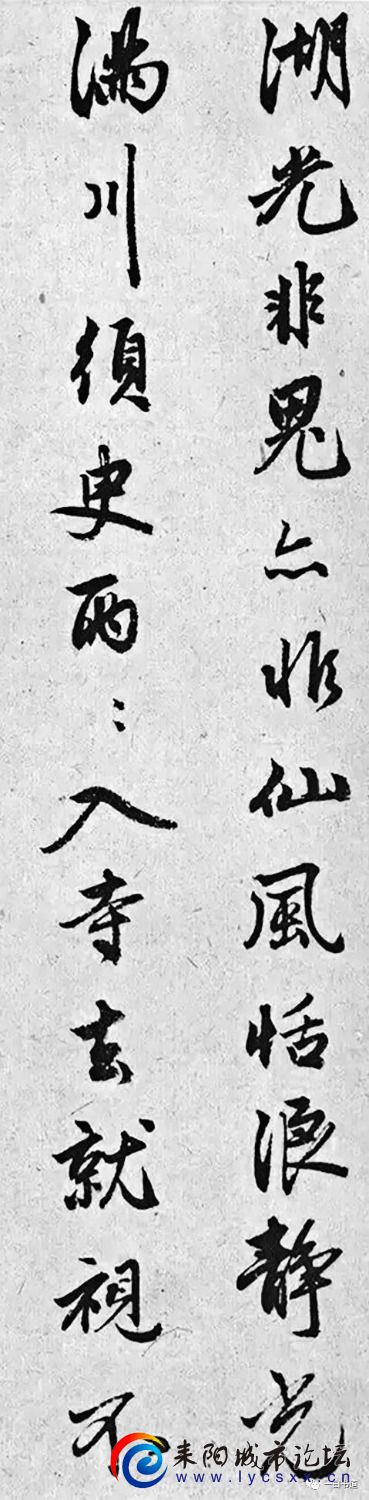 湖光非鬼亦非仙風恬浪靜光
滿川須臾兩〻入寺去就視不
耒阳城市论坛
www.lycsxx.cn